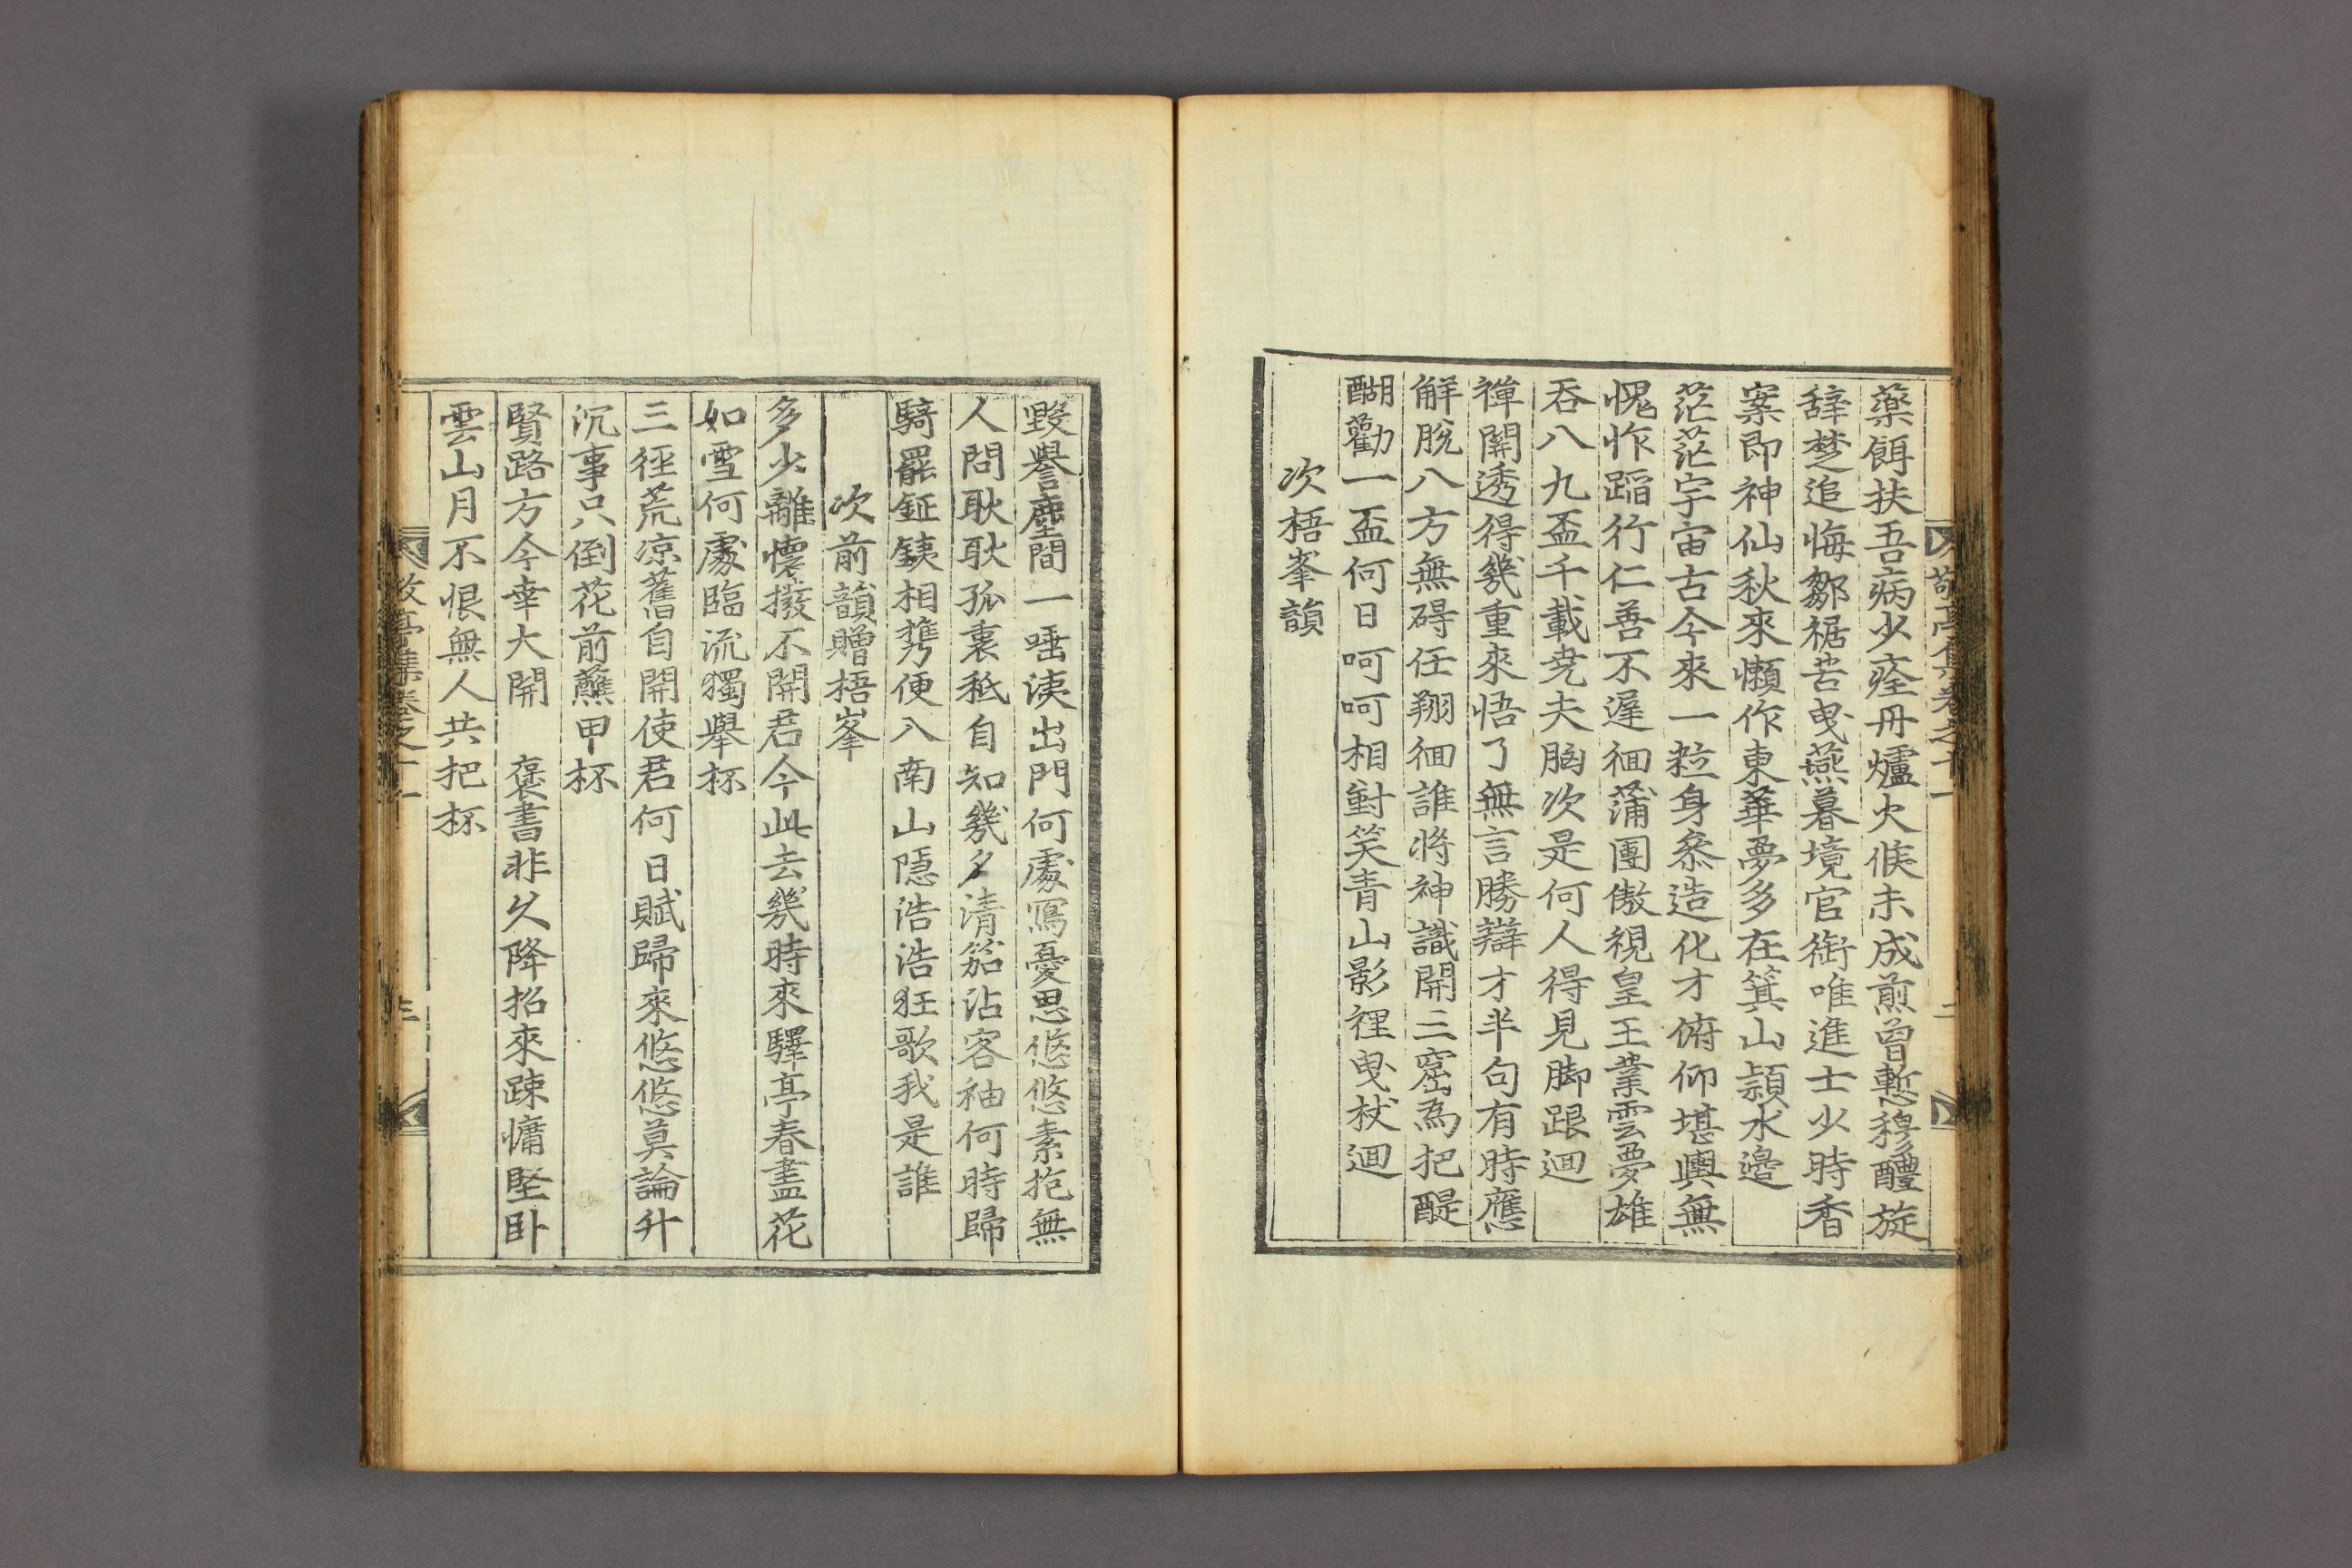 敬亭集卷之十一
二
藥餌扶吾病少痊丹爐火候未成煎曾慙穆醴旋
辭楚追悔鄒裾苦曳燕暮境官銜唯進士少時香
案即神仙秋來懶作東華夢多在箕山潁水邊
茫茫宇宙古今來一粒身叅造化才俯仰堪輿無
愧怍蹈行仁善不遅徊蒲團傲視皇王業雲夢雄
吞八九盃千載尭夫胸次是何人得見脚跟逥
禪關透得幾重來悟了無言勝辯才半句有時應
觧脫八方無碍任翔徊誰將神識開三窟為把醍
醐勸一盃何日呵呵相對笑青山影裡曳栻逥
次梧峯韻
毀譽塵間一唾洟出門何處寫憂思悠悠素抱無
人問耿耿孤裏秪自知幾夕清笳沾客袖何時歸
騎罷鉦銕相携便入南山隱浩浩狂歌我是誰
次前韻贈梧峯
多少離懷撥不開君今此去幾時來驛亭春盡花
如雪何處臨流獨舉杯
三徑荒凉舊自開使君何日賦歸來悠悠莫論升
沉事只倒花前蘸甲杯
賢路方今幸大開　褒書非久降招來踈慵堅卧
雲山月不恨無人共把杯
敬亭集卷之十一
三